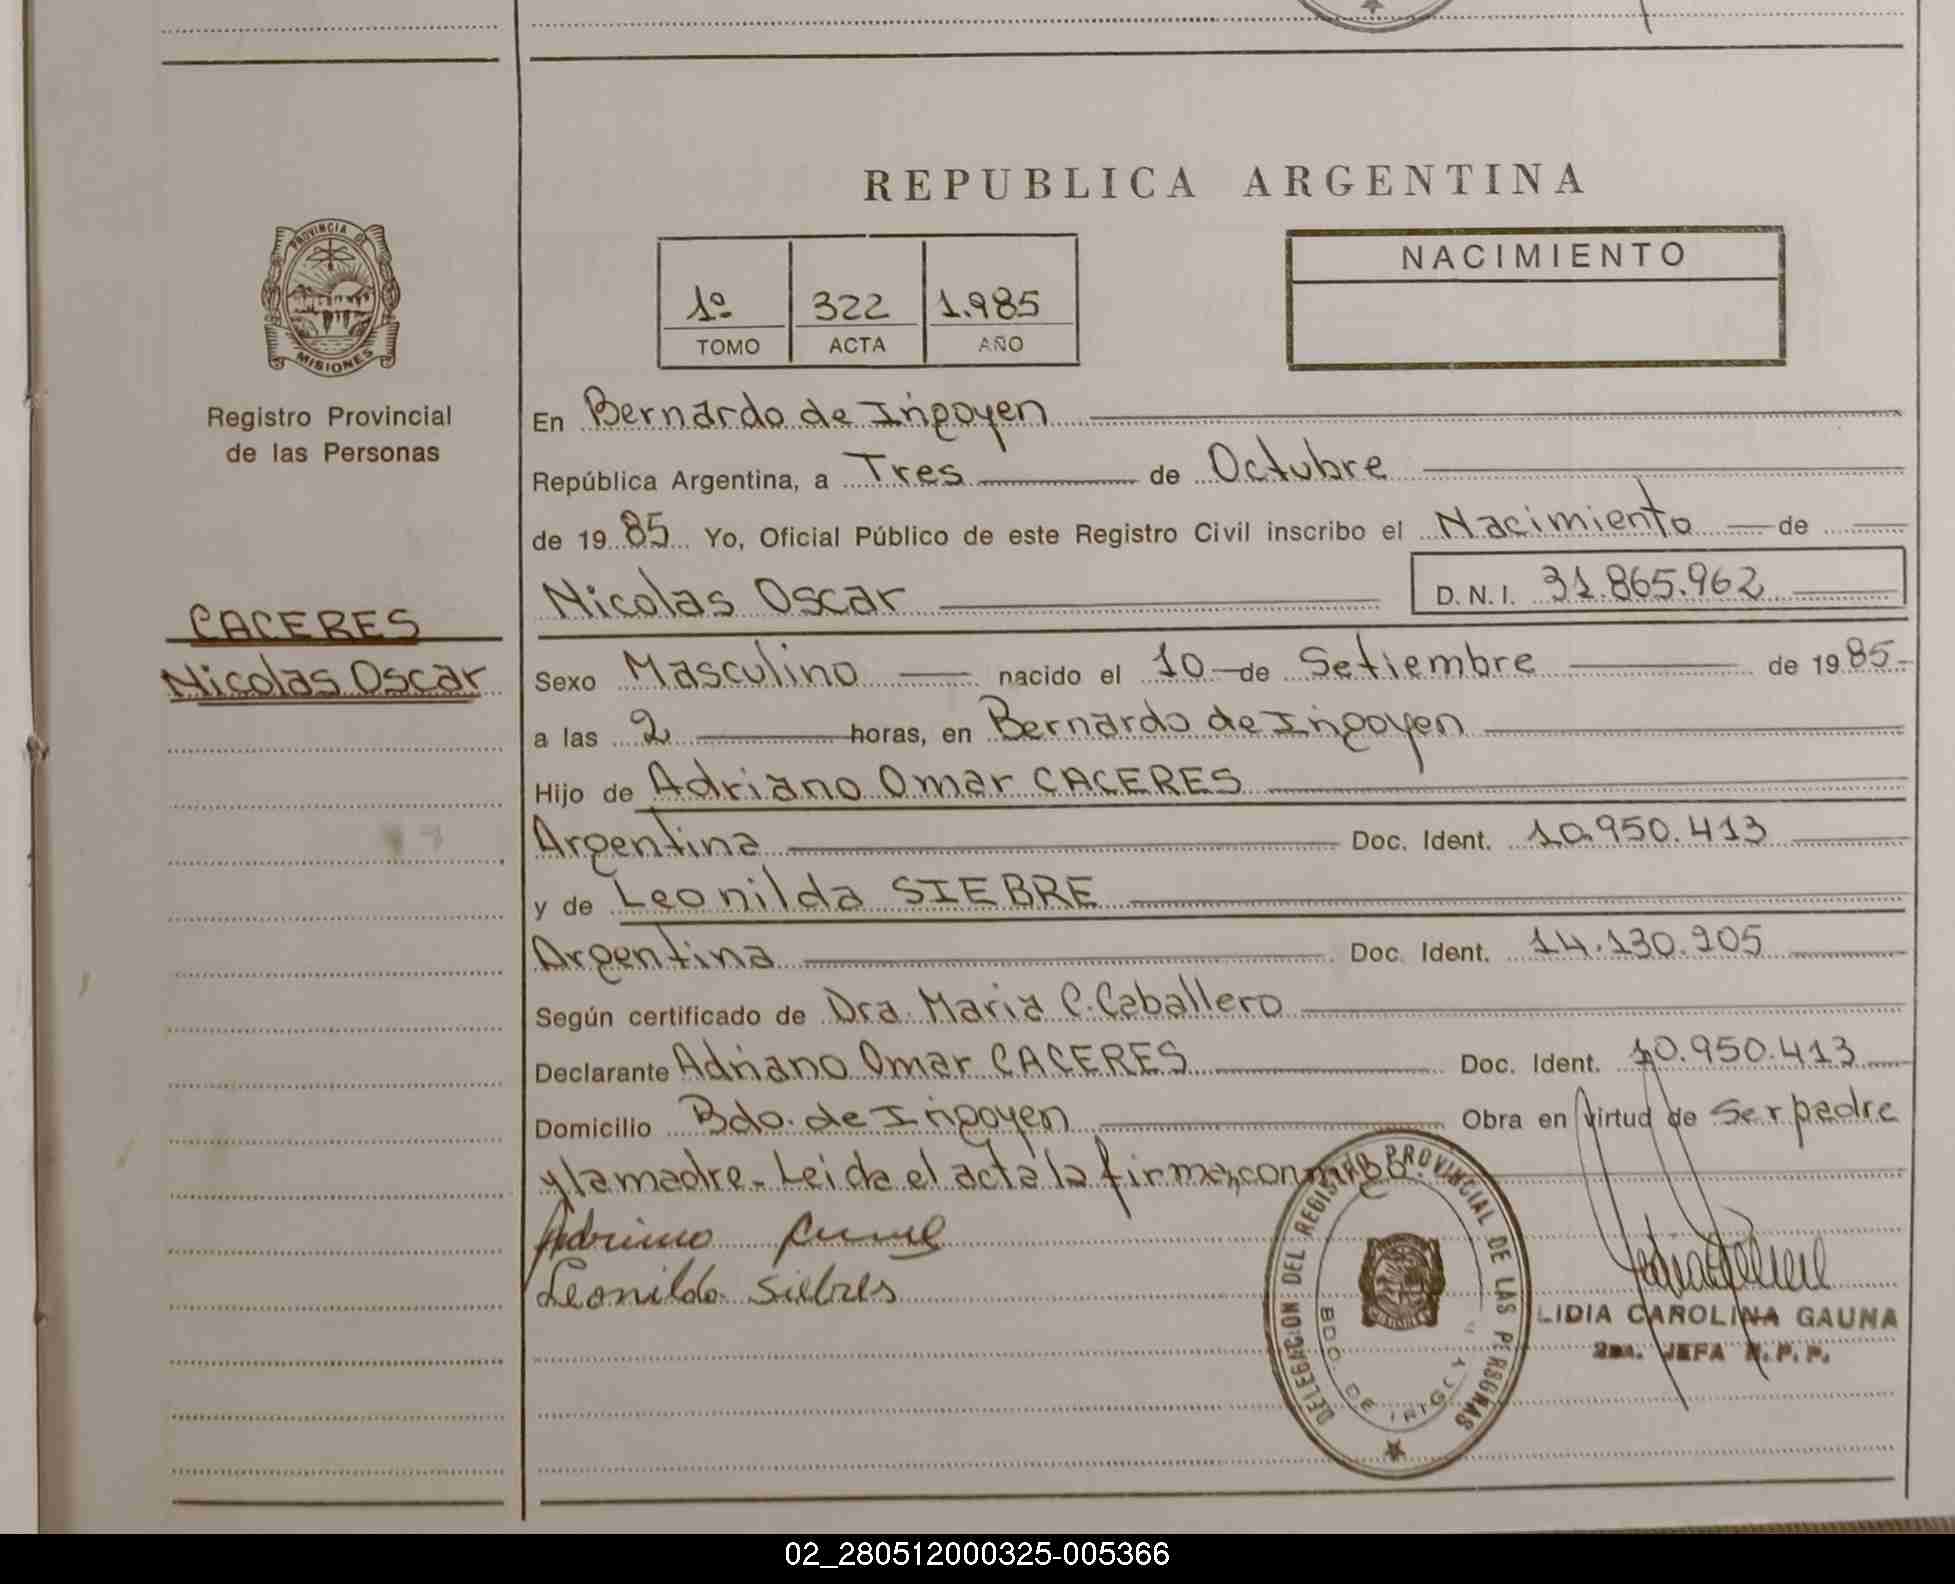 REPUBLICA ARGENTINA
PROVINCIA DE
MISIONES
Registro Provincial
de las Personas
CACERES
Nicolas Oscar
1º 322 1.985
TOMO ACTA AÑO
NACIMIENTO
En Bernardo de Irigoyen
República Argentina, a Tres de Octubre
de 1985 Yo, Oficial Público de este Registro Civil inscribo el Nacimiento de
Nicolas Oscar D.N.I. 31.865.962
Sexo Masculino nacido el 10 de Setiembre de 1985
a las 2 horas, en Bernardo de Irigoyen
Hijo de Adriano Omar CACERES
Argentina Doc. Ident. 10.950.413
y de Leonilda SIEBRE
Argentina Doc. Ident. 14.130.205
Según certificado de Dra. Maria C. Caballero
Declarante Adriano Omar CACERES Doc. Ident. 10.950.413
Domicilio Bdo. de Irigoyen Obra en virtud de Ser padre
y la madre.- Leida el acta la firman conmigo.
Adriano
Leonilda Siebres
DELEGACION DEL REGISTRO PROVINCIAL DE LAS PERSONAS
BDO DE IRIGOY
LIDIA CAROLINA GAUNA
2da. JEFA R.P.P.
02_280512000325-005366